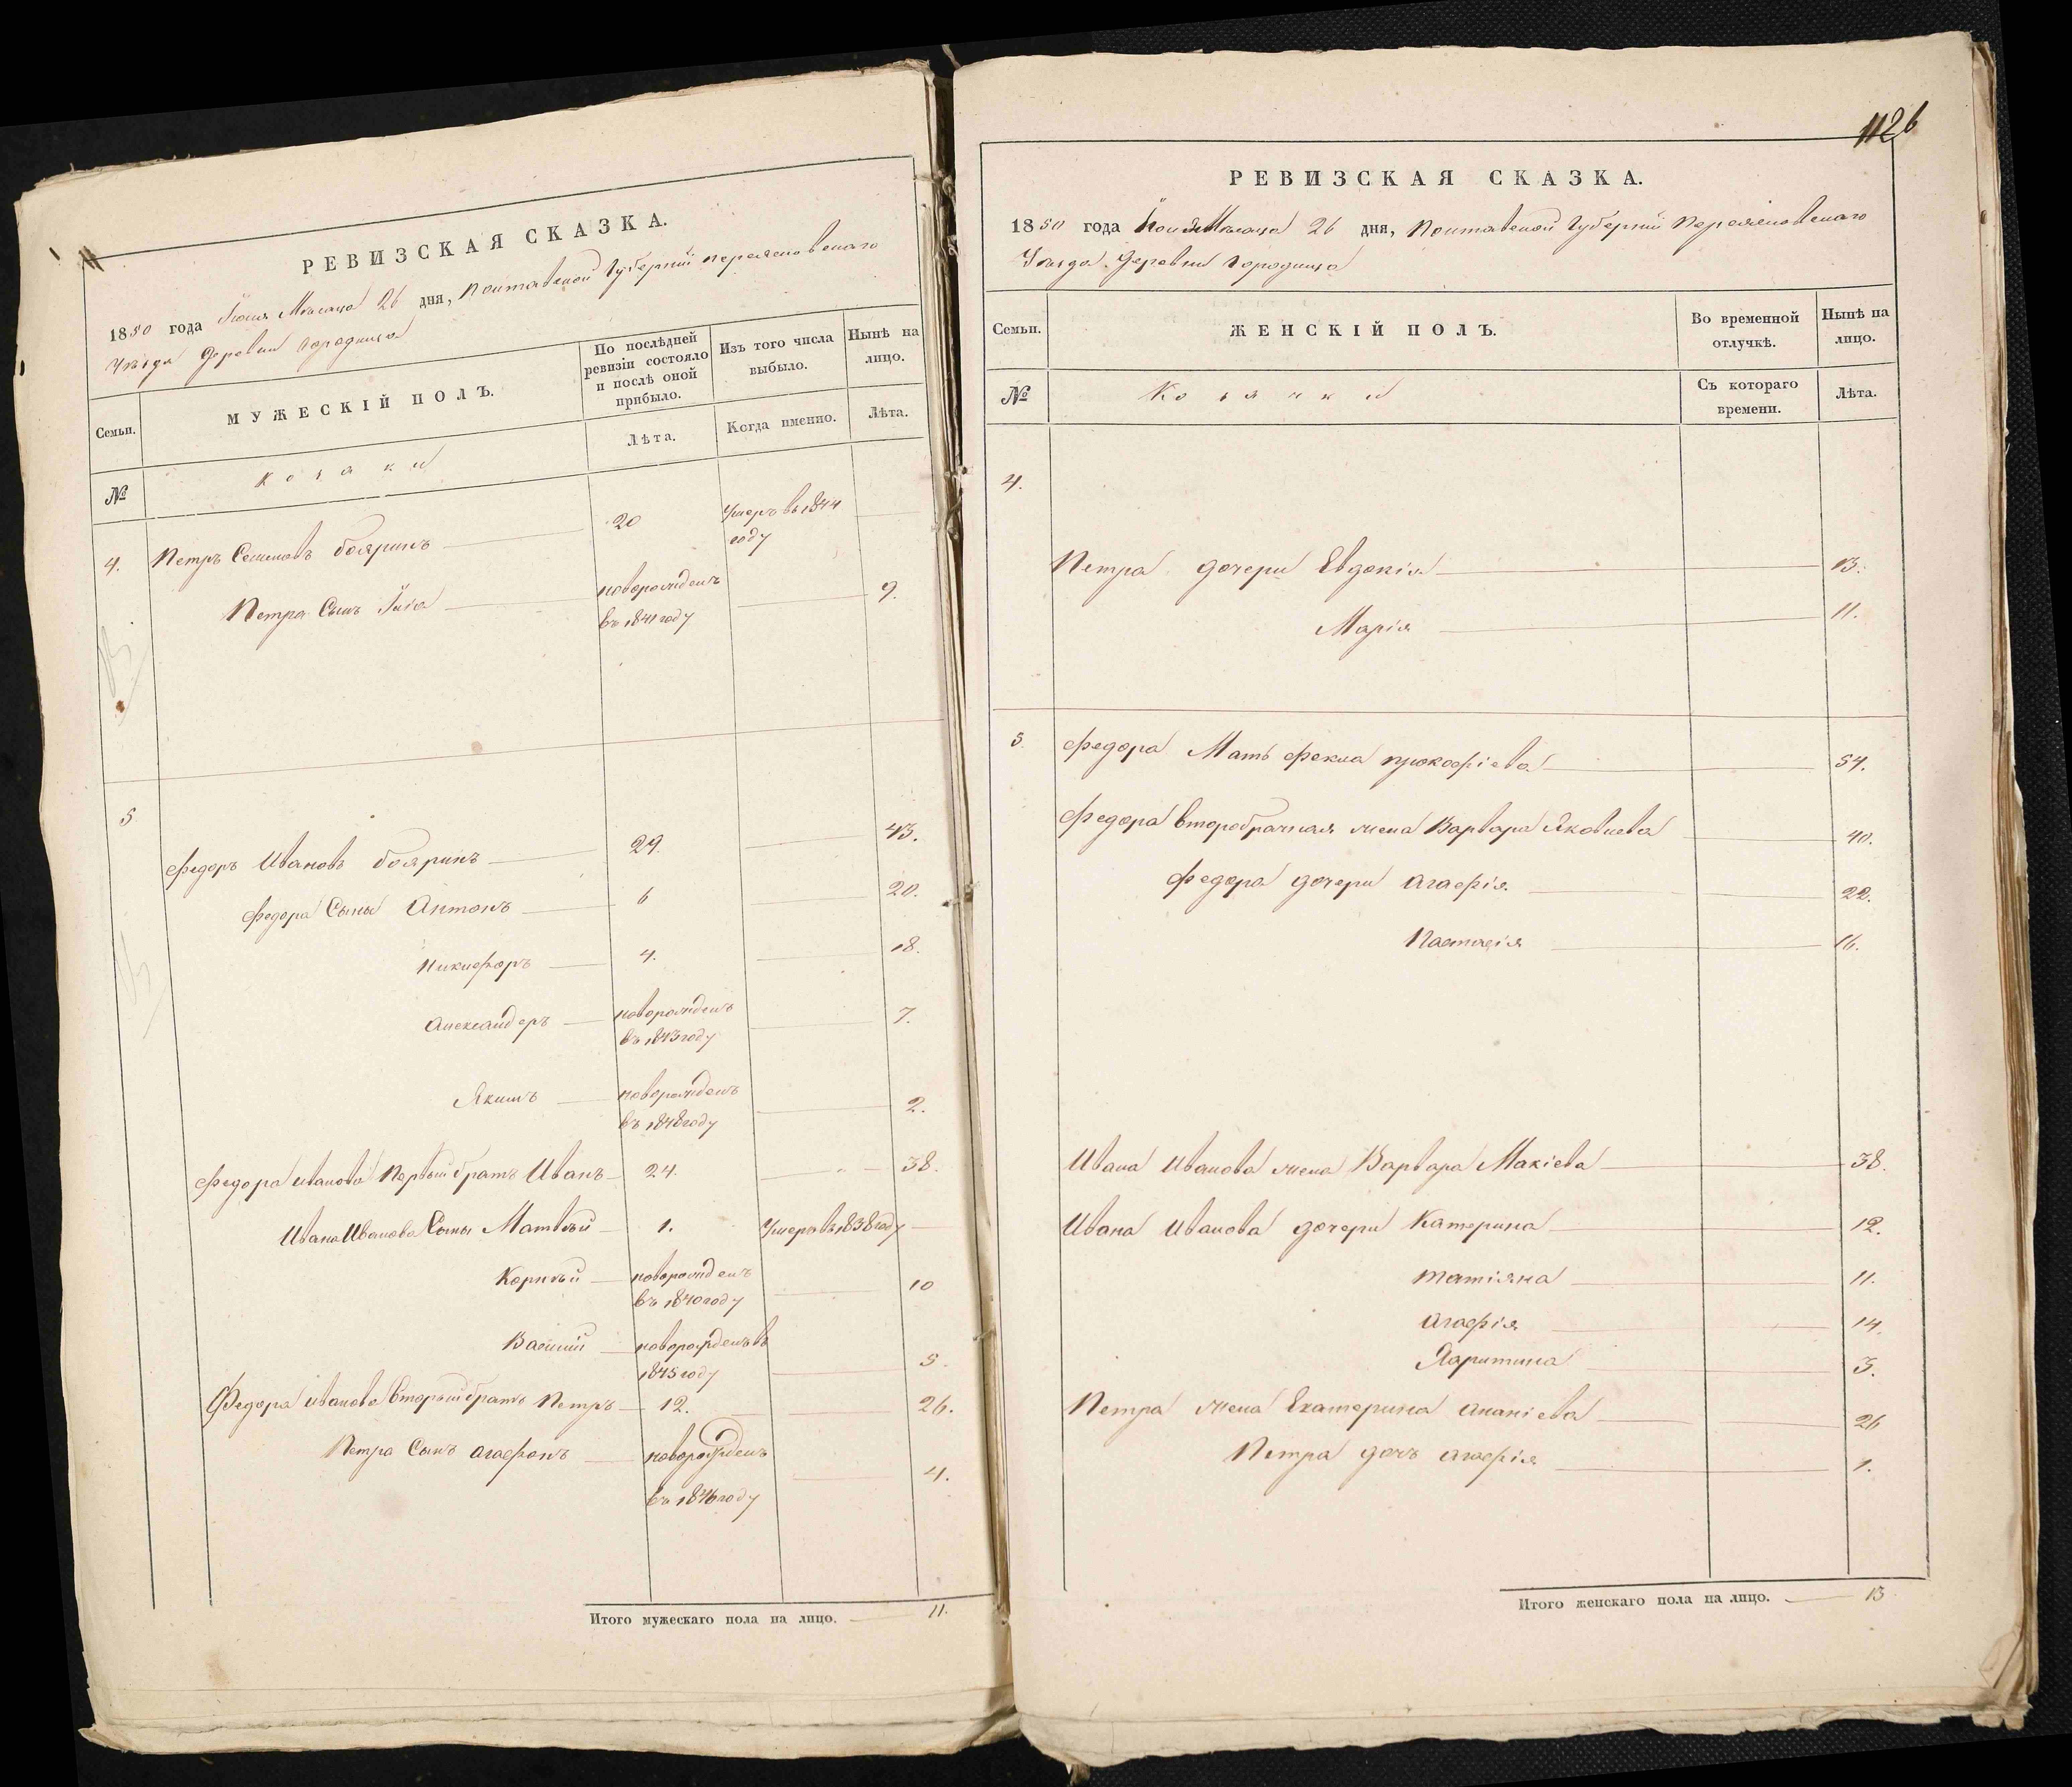 РЕВИЗСКАЯ СКАЗКА.
1850 года Іюня Мѣсяца 26 дня, Полтавской Губерніи Переяславскаго
Уѣзда Деревни Городища
Семьи.
МУЖЕСКІЙ ПОЛЪ.
По послѣдней ревизіи состояло и послѣ оной прибыло.
Изъ того числа выбыло.
Нынѣ на лицо.
Лѣта.
Когда именно.
Лѣта.
№
Козаки
4. Петръ Семеновъ бояринъ 20 Умеръ въ 1844 году
Петра Сынъ новорожденъ въ 1841 году 9.
5 Федоръ Ивановъ бояринъ 29. 43.
Федора Сыны Антонъ 6 20.
Никифоръ 4. 18.
Александеръ новорожденъ въ 1843 году 7.
Якимъ новорожденъ въ 1848 году 2.
Федора Иванова Первый братъ Иванъ 24 38.
Ивана Иванова Сыны Матвѣй 1. Умеръ въ 1838 году
Корнѣй новорожденъ въ 1840 году 10
Василій новорожденъ въ 1845 году 5.
Федора Иванова Вторый братъ Петръ 12. 26.
Петра Сынъ Агафонъ новорожденъ въ 1846 году 4.
Итого мужескаго пола на лицо. 11.
1126
РЕВИЗСКАЯ СКАЗКА.
1850 года Іюня Мѣсяца 26 дня, Полтавской Губерніи Переяславскаго
Уѣзда Деревни Городища
Семьи.
ЖЕНСКІЙ ПОЛЪ.
Во временной отлучкѣ.
Нынѣ на лицо.
№
Козачки
Съ котораго времени.
Лѣта.
4.
Петра дочери Евдокія 13.
Марія 11.
5. Федора Мать Фекла Прокофіева 54.
Федора Второбрачная жена Варвара Яковлева 40.
Федора дочери Агафія 22.
Настасія 16.
Ивана Иванова жена Варвара Макіева 38.
Ивана Иванова дочери Катерина 12.
Татіяна 11.
Агафія 14.
Харитина 3.
Петра жена Екатерина Ананіева 26
Петра дочь Агафія 1.
Итого женскаго пола на лицо. 13